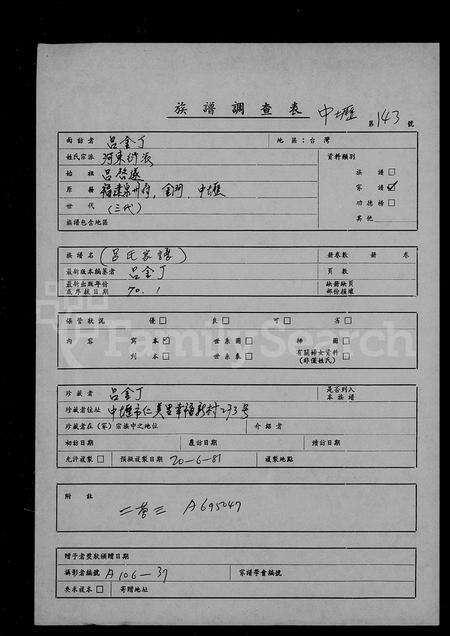 族譜調查表 中壢 第143號
面訪者 呂金丁 地區：台灣
姓氏宗派 河東衍派 資料類別
始祖 呂啓盛 族譜□
原籍 福建泉州府，金門，中壢 家譜☑
世代 （三代） 功德榜□
族譜包含地區 其他
族譜名（呂氏家譜） 冊卷數 冊 卷
最新版本編纂者 呂金丁 頁數
最新出版年份或序
校日期 70.1 缺冊缺頁部份損壞
保管狀況 優□ 良□ 可□ 劣□
內容 寫本☑ 世系圖□ 神圖□
刊本□ 世系表□ 有關婦女資料（非僅姓氏）□
珍藏者 呂金丁 是否列入本族譜
珍藏者住址 中壢市仁美里幸福新村273號
珍藏者在（家）宗族中之地位 介紹者
初訪日期 覆訪日期 續訪日期
允許複製□ 預擬複製日期 20-6-81 複製地點
附註 二營三 A695047
贈予者獎狀稱贈日期
攝影者編號 A106-37 家譜學會編號
要求複本□ 寄贈地址
FamilySearch